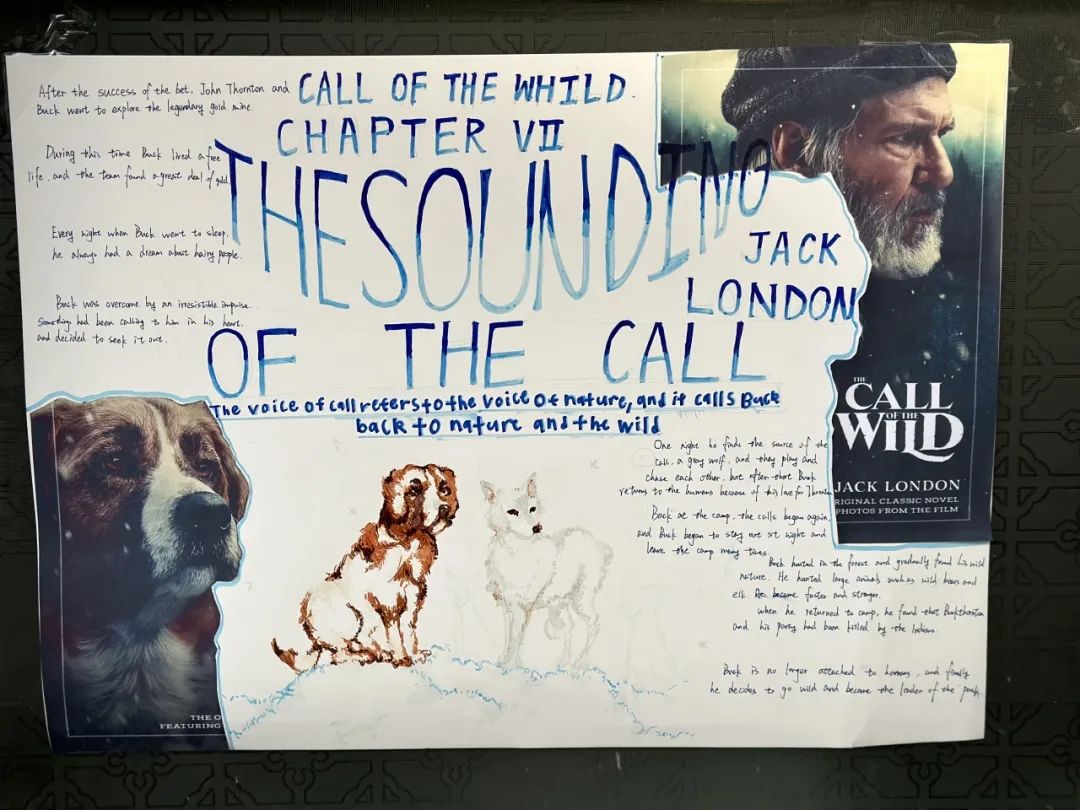 After the success of the bet, John Thornton and
Buck went to explore the legendary gold mine.
During this time Buck lived a free
life, and the team found a great deal of gold.
Every night when Buck went to sleep,
he always had a dream about hairy people.
Buck was overcome by an irresistible impulse.
Something had been calling to him in his heart,
and decided to seek it out.
CALL OF THE WHILD.
CHAPTER VII
THESOUNDING
OF THE CALL
JACK
LONDON
The voice of call refers to the voice of nature, and it calls Buck
back to nature and the wild
One night he finds the source of the
call, a gray wolf, and they play and
chase each other, but after that Buck
returns to the humans because of his love for Thornton
Back at the camp, the calls began again,
and Buck began to stay out at night and
leave the camp many times.
Buck hunted in the forest and gradually found his wild
nature. He hunted large animals such as wild bears and
elk. He became faster and stronger.
when he returned to camp, he found that Buckthornton
and his party had been killed by the Indians.
Buck is no longer attached to humans, and finally
he decides to go wild and became the leader of the pack.
THE CALL
OF THE
WILD
JACK LONDON
RIGINAL CLASSIC NOVEL
PHOTOS FROM THE FILM
THE O
FEATURING